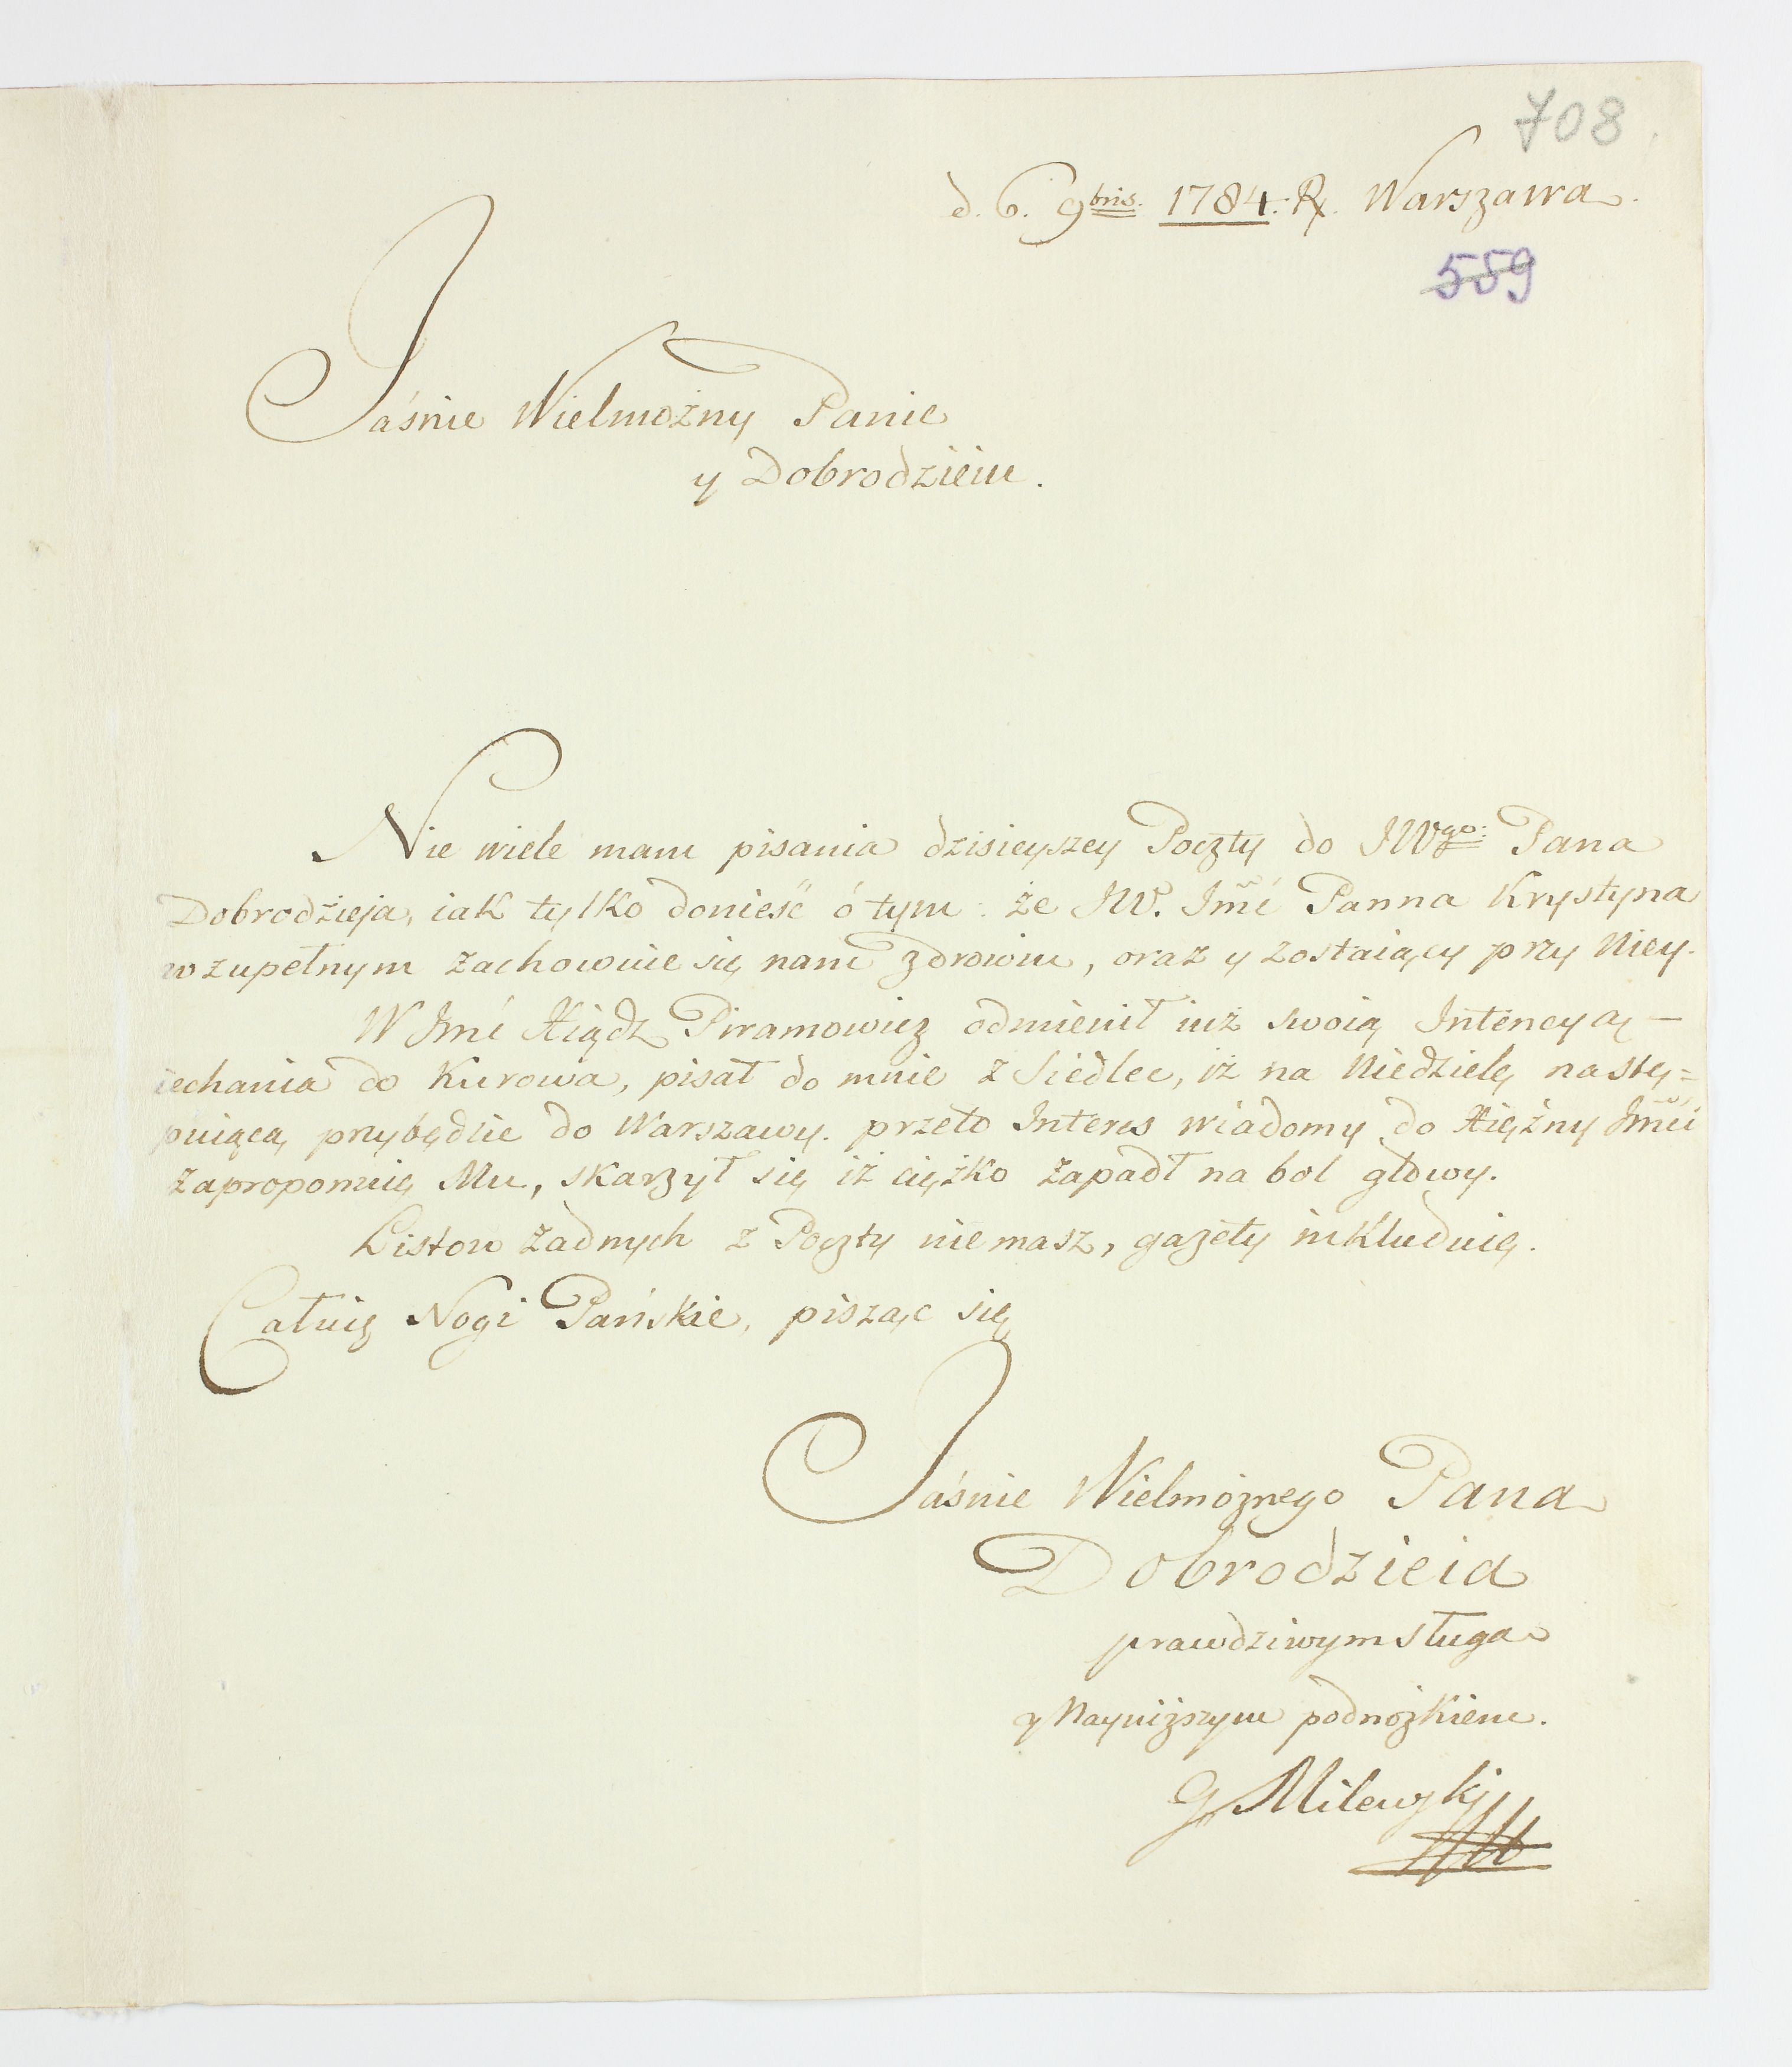 708
d. 6. 9bris. 1784. R. Warszawa.
559
Jaśnie Wielmożny Panie
y Dobrodzieiu.
Nie wiele mam pisania dzisieyszey Poczty do JWgo: Pana
Dobrodzieja, iak tylko donieść ó tym: że JW. Jmć Panna Krystyna
w zupełnym zachowuie się nam zdrowiu, oraz y zostaiący przy Niey.
W Jmć Xiądz Piramowicz odmienił iuż swoią Intencyą —
iechania do Kurowa, pisał do mnie z Siedlec, iż na Niedzielę nastę=
puiącą przybędzie do Warszawy. przeto Interes wiadomy do Xiężny Jmći
zaproponuię Mu, skarżył się iż ciężko zapadł na bol głowy.
Listow żadnych z Poczty nie masz, gazety inkluduię.
Całuię Nogi Pańskie, pisząc się
Jaśnie Wielmożnego Pana
Dobrodzieia
prawdziwym sługa
y Nayniższym podnożkiem.
G Milewski